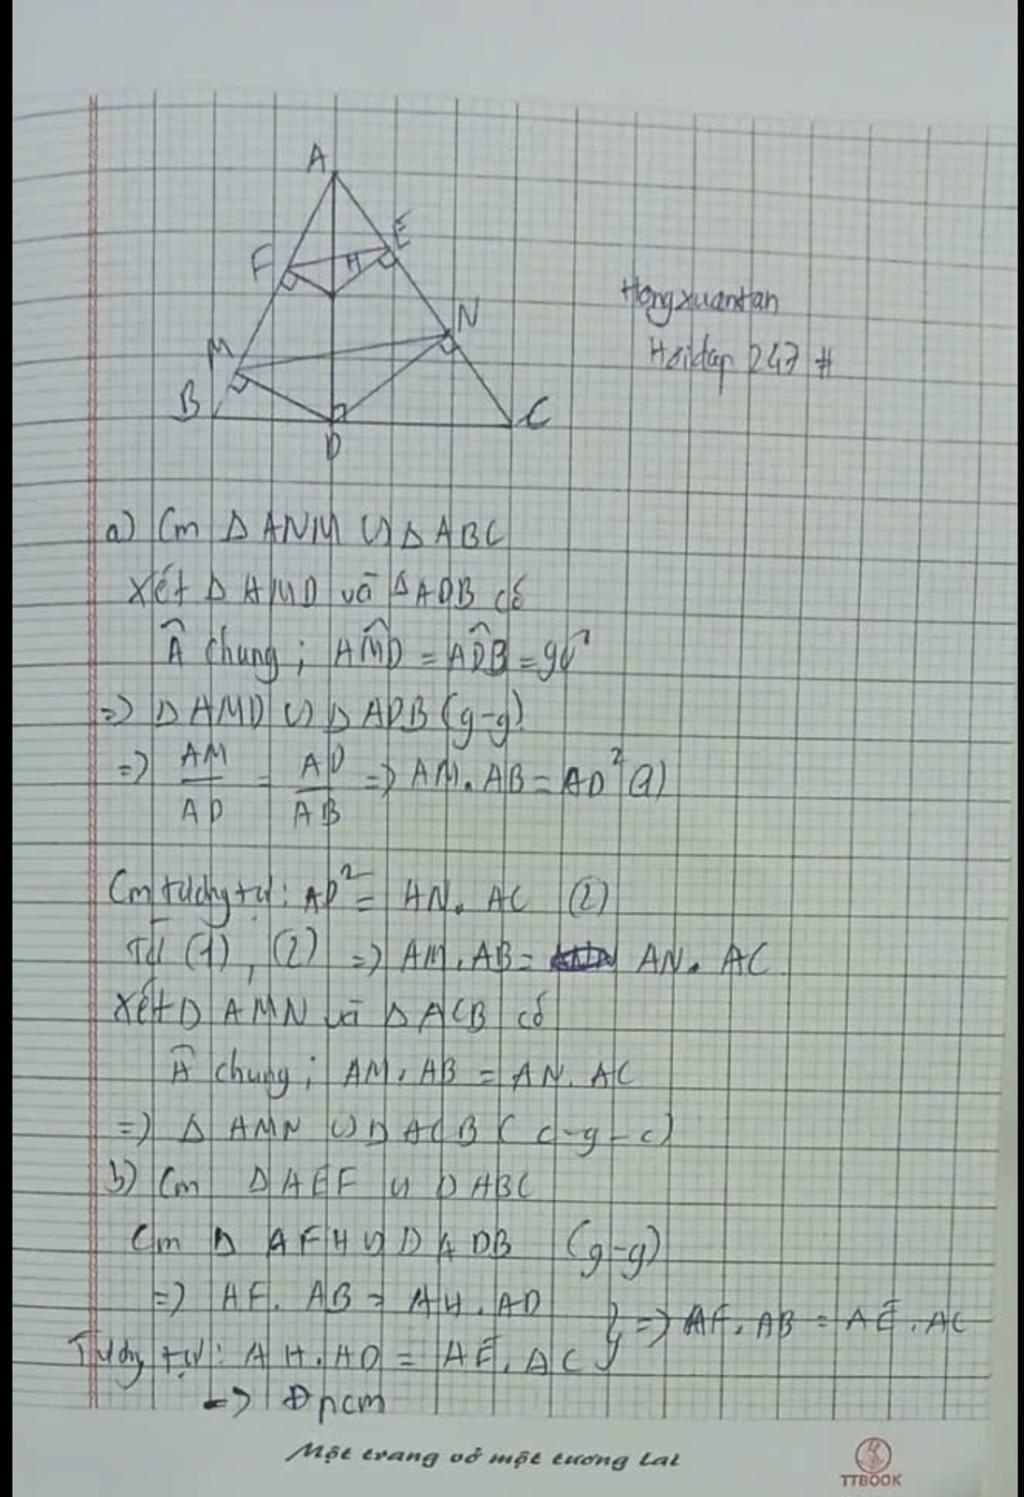 A
F
H
E
M
N
B
D
C
Hongxuantan
Hoidap 247 #
a) Cm Δ ANM ∽ Δ ABC
Xét Δ AMD và Δ ADB có
Â chung ; AM̂D = AD̂B = 90°
=> Δ AMD ∽ Δ ADB (g-g)
=> AM/AD = AD/AB => AM. AB = AD² (1)
Cm tương tự : AD² = AN. AC (2)
Từ (1), (2) => AM. AB = AN. AC
Xét Δ AMN và Δ ACB có
Â chung ; AM. AB = AN. AC
=> Δ AMN ∽ Δ ACB ( c-g-c)
b) Cm Δ AEF ∽ Δ ABC
Cm Δ AFH ∽ Δ ADB (g-g)
=> AF. AB = AH. AD
Tương tự : AH. AD = AE. AC } => AF. AB = AE. AC
=> Đpcm
Một trang vở một tương lai
TTBOOK